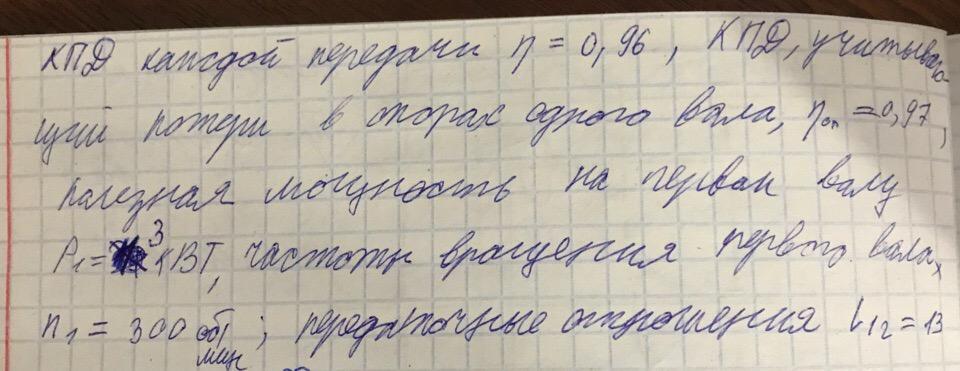 КПД каждой передачи η = 0,96, КПД, учитываю-
щий потери в опорах одного вала, ηоп = 0,97,
полезная мощность на первом валу
P₁ = 3 кВТ, частоты вращения первого вала,
n₁ = 300 об/мин; передаточные отношения i₁₂ = 13